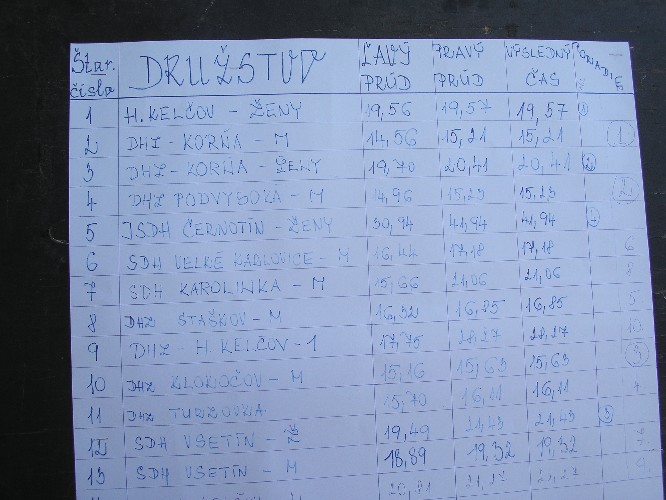 Štar. čísla DRUŽSTVO ĽAVÝ PRÚD PRAVÝ PRÚD VÝSLEDNÝ ČAS PORADIE
1 H. KELČOV - ŽENY 19,56 19,57 19,57
2 DHZ - KORŇA - M 14,56 15,21 15,21 1
3 DHZ - KORŇA - ŽENY 19,70 20,41 20,41 2
4 DHZ PODVYSOKÁ - M 14,96 15,23 15,23 2
5 JSDH ČERNOTÍN - ŽENY 30,94 41,94 41,94
6 SDH VELKÉ KARLOVICE - M 16,44 17,18 17,18 6
7 SDH KAROLINKA - M 15,66 21,06 21,06 8
8 DHZ STAŠKOV - M 16,32 16,85 16,85 5
9 DHZ - H. KELČOV - 1 17,75 28,27 28,27 10
10 DHZ KLOKOČOV - M 15,16 15,63 15,63 3
11 DHZ TURZOVKA 15,70 16,11 16,11
12 SDH VSETÍN - Ž 19,49 21,43 21,43
13 SDH VSETÍN - M 18,89 19,32 19,32